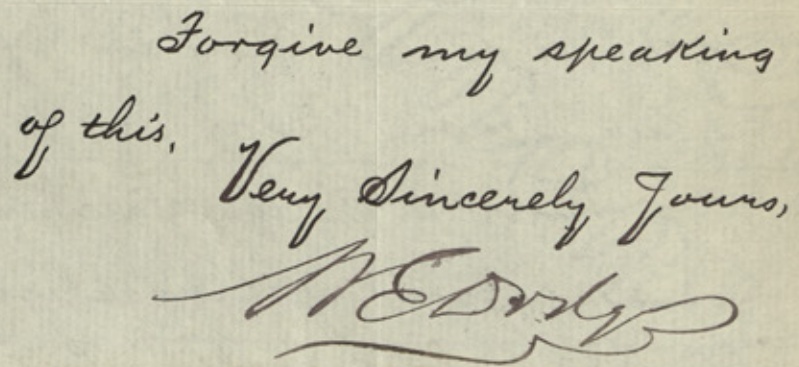 Forgive my speaking
of this.
Very Sincerely Yours,
W E Dodge